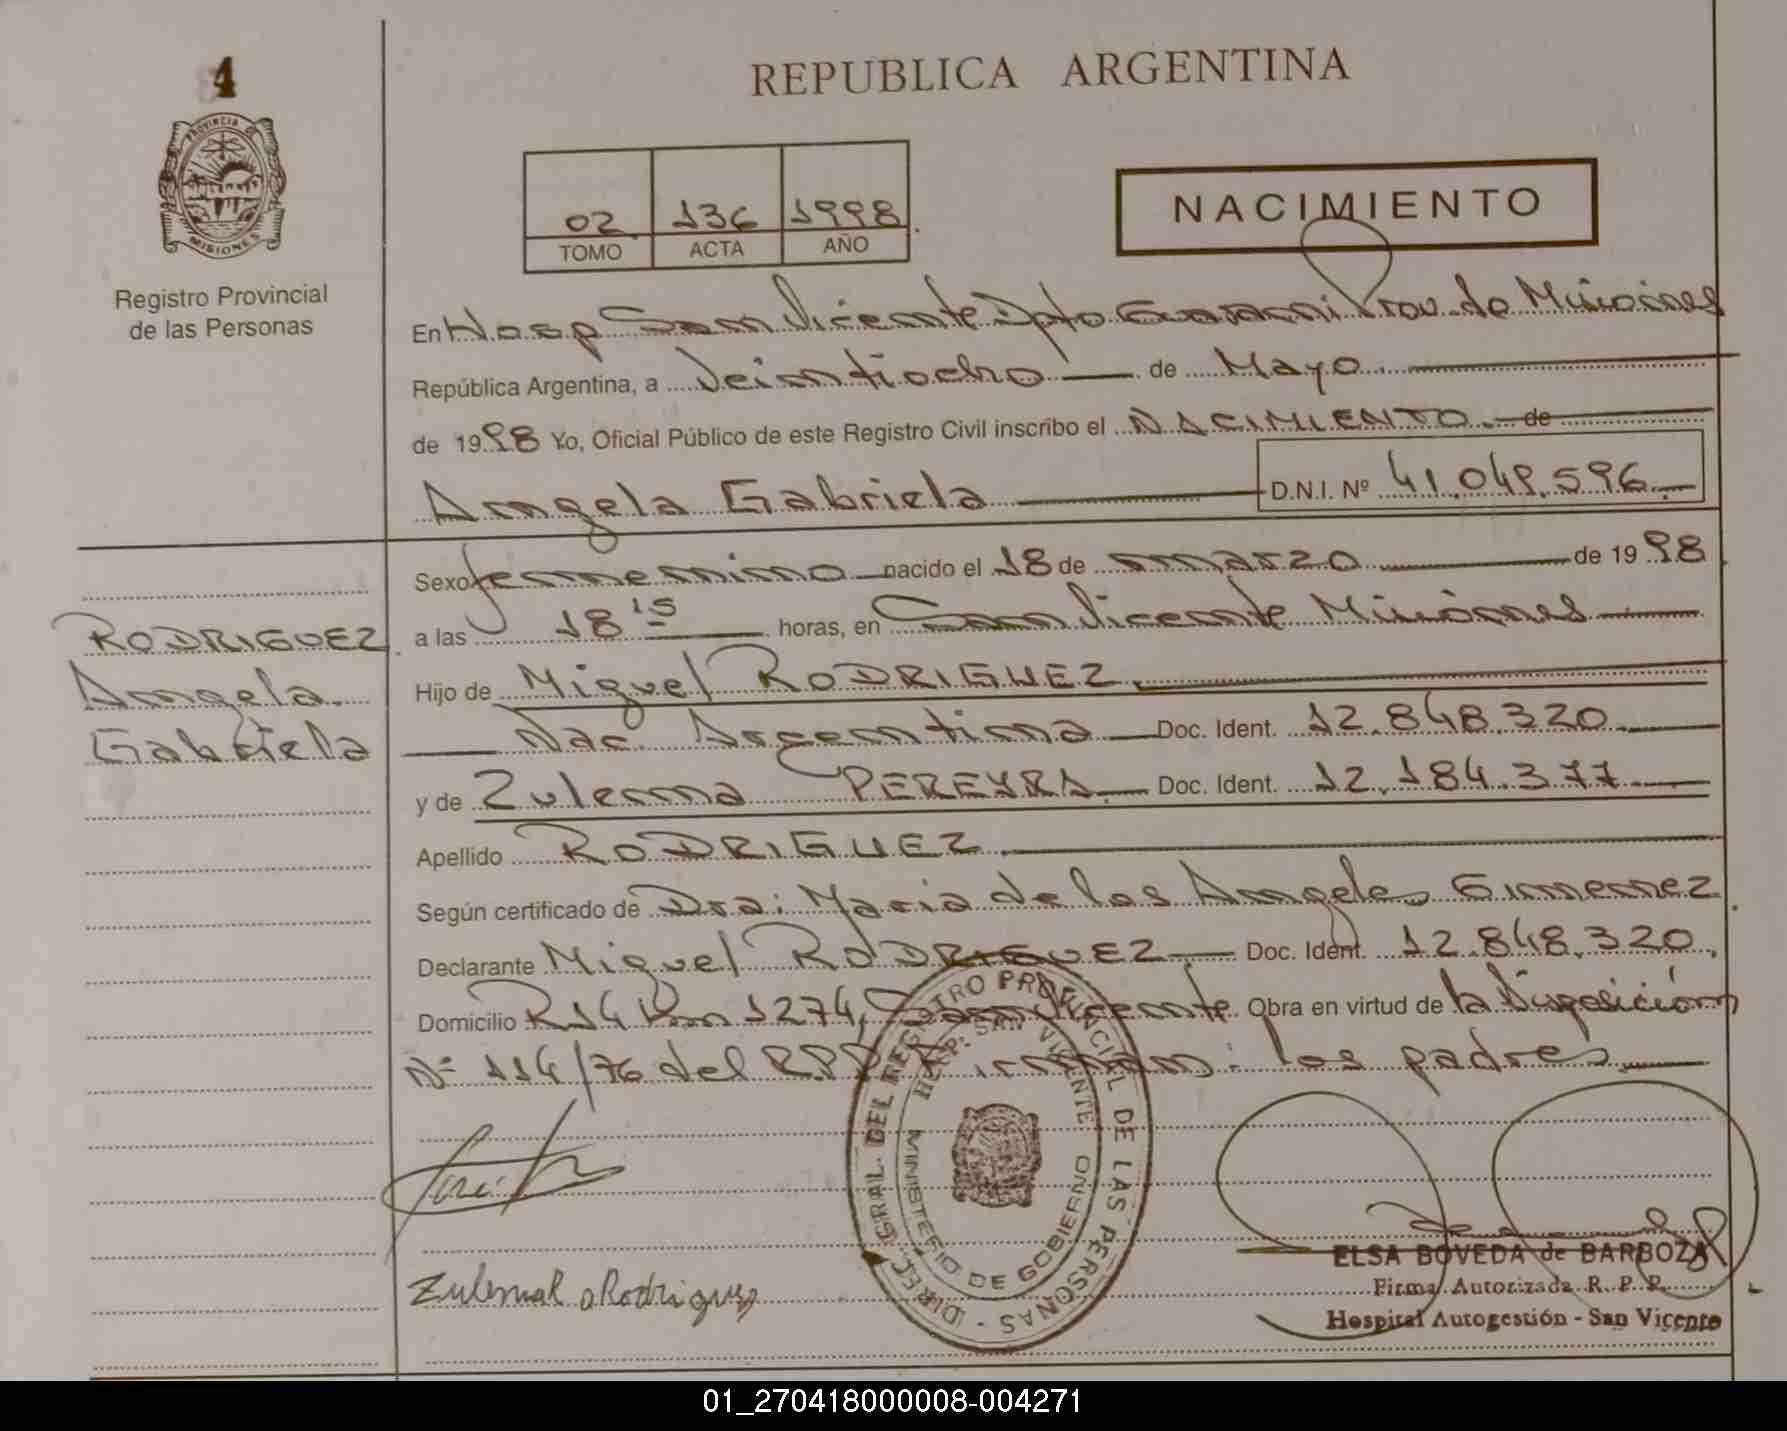 4
REPUBLICA ARGENTINA
PROVINCIA DE
MISIONES
Registro Provincial
de las Personas
02 136 1998
TOMO ACTA AÑO
NACIMIENTO
En Hosp San Vicente Dpto Guarani Prov. de Misiones
República Argentina, a Veintiocho de Mayo
de 1998 Yo, Oficial Público de este Registro Civil inscribo el NACIMIENTO. de
Angela Gabriela D.N.I. Nº 41.049.596
Sexo femenino nacido el 18 de marzo de 1998
a las 18 15 horas, en San Vicente Misiones
RODRIGUEZ
Angela
Gabriela
Hijo de Miguel RODRIGUEZ.
Nac. Argentina Doc. Ident. 12.848.320
y de Zulema PEREYRA. Doc. Ident. 12.184.377
Apellido RODRIGUEZ.
Según certificado de Dra: Maria de los Angeles Gimenez
Declarante Miguel RODRIGUEZ Doc. Ident. 12.848.320.
Domicilio R14 Km 1274, San Vicente. Obra en virtud de la Disposición
Nº 114/76 del R.P.P. Firman: los padres
DIREC. GRAL. DEL REGISTRO PROVINCIAL DE LAS PERSONAS -
HOSP: SAN VICENTE
MINISTERIO DE GOBIERNO
ELSA BOVEDA de BARBOZA
Firma Autorizada R. P. P.
Hospital Autogestión - San Vicente
01_270418000008-004271